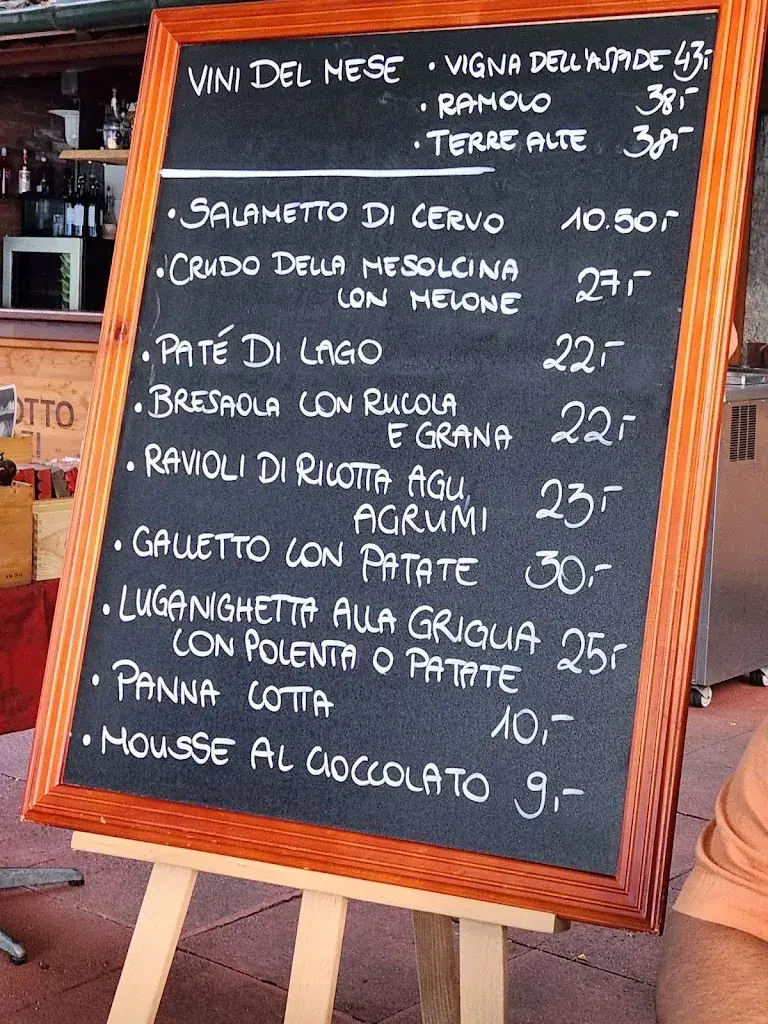 VINI DEL MESE • VIGNA DELL'ASPIDE 43,-
• RAMOLO 38,-
• TERRE ALTE 38,-
• SALAMETTO DI CERVO 10.50,-
• CRUDO DELLA MESOLCINA
CON MELONE 27,-
• PATÉ DI LAGO 22,-
• BRESAOLA CON RUCOLA
E GRANA 22,-
• RAVIOLI DI RICOTTA AGLI
AGRUMI 23,-
• GALLETTO CON PATATE 30,-
• LUGANIGHETTA ALLA GRIGLIA
CON POLENTA O PATATE 25,-
• PANNA COTTA 10,-
• MOUSSE AL CIOCCOLATO 9,-
OTTO